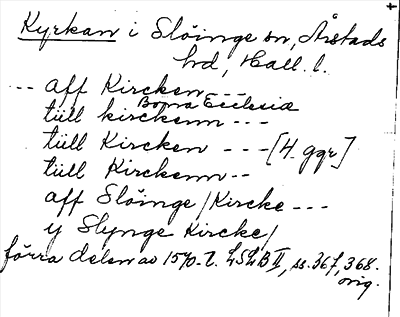 Kyrkan i Slöinge sn, Årstads
hd, Hall. l.
-- aff Kircken ---
Bona Ecclesia
till kirckenn ---
till Kircken --- [4 ggr]
till Kirckenn --
aff Slöinge / Kircke ---
y Slynge Kircke /
förra delen av 1570-t. LSLB II, ss. 367, 368.
orig.